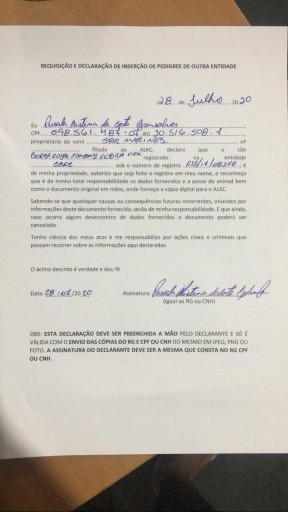 REQUISIÇÃO E DECLARAÇÃO DE INSERÇÃO DE PEDIGREE DE OUTRA ENTIDADE
28 de Julho 2020
Eu
CPF RG
proprietário do canil nº
filiado ao ALKC, declaro que o cão
registrado na entidade
sob o número de registro é
de minha propriedade, autorizo que seja feito o registro em meu nome, e reconheço
que é de minha total responsabilidade os dados fornecidos e a posse do animal bem
como o documento original em mãos, onde forneço a cópia digital para o ALKC.
Sabendo-se que quaisquer causas ou consequências futuras recorrentes, oriundos por
informações deste documento fornecido, serão de minha responsabilidade. E que ainda,
caso ocorra algum desencontro de dados fornecidos o documento poderá ser
cancelado.
Tenho ciência dos meus atos e me responsabilizo por ações cíveis e criminais que
possuam recorrer sobre as informações aqui declaradas.
O acima descrito é verdade e dou fé
Data: 28/07/2020 Assinatura:
(Igual ao RG ou CNH)
OBS: ESTA DECLARAÇÃO DEVE SER PREENCHIDA A MÃO PELO DECLARANTE E SÓ É
VÁLIDA COM O ENVIO DAS CÓPIAS DO RG E CPF OU CNH DO MESMO EM JPEG, PNG OU
FOTO. A ASSINATURA DO DECLARANTE DEVE SER A MESMA QUE CONSTA NO RG CPF
OU CNH.